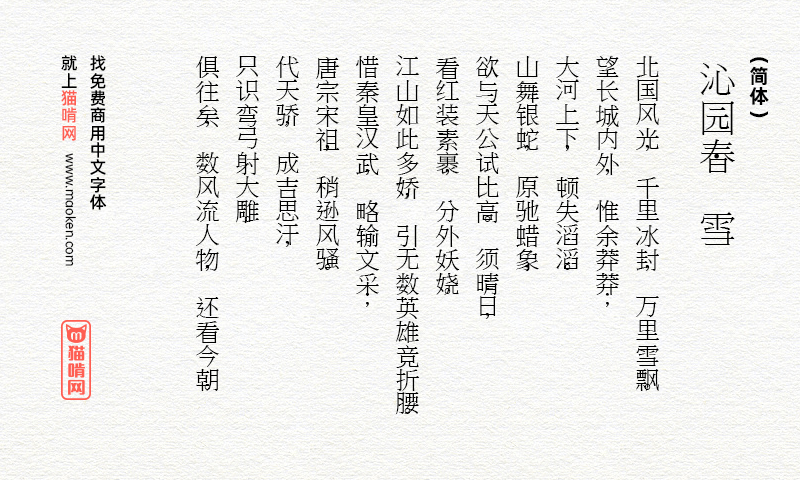 (简体)
沁园春 雪
北国风光，千里冰封，万里雪飘，
望长城内外，惟余莽莽，
大河上下，顿失滔滔，
山舞银蛇，原驰蜡象，
欲与天公试比高，须晴日，
看红装素裹，分外妖娆，
江山如此多娇，引无数英雄竞折腰，
惜秦皇汉武，略输文采，
唐宗宋祖，稍逊风骚，
代天骄，成吉思汗，
只识弯弓射大雕，
俱往矣，数风流人物，还看今朝
找免费商用中文字体
就上猫啃网 www.maoken.com
猫啃网